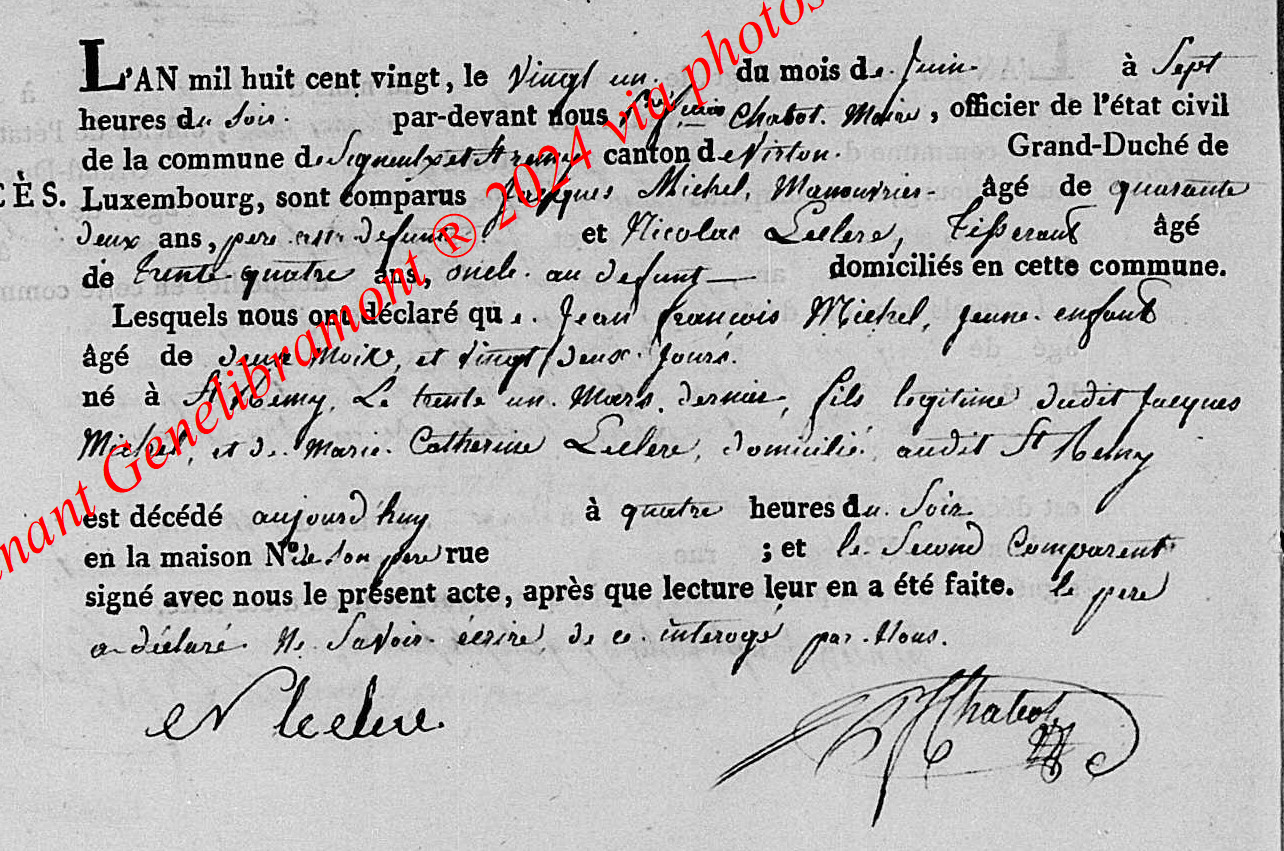 L'AN mil huit cent vingt, le vingt un du mois de Juin à Sept
heures du Soir. par-devant nous Chabot Maire, officier de l'état civil
de la commune de Signeulx et canton de Virton. Grand-Duché de
CÈS. Luxembourg, sont comparus Jacques Michel, Manouvrier âgé de quarante
deux ans, pere au defunt et Nicolas Leclere, Tisserant âgé
de trente quatre ans, oncle au defunt — domiciliés en cette commune.
Lesquels nous ont déclaré que Jean françois Michel, jeune enfant
âgé de deux mois, et vingt deux jours.
né à St Remy, Le trente un Mars dernier, fils legitime dudit Jacques
Michel, et de Marie Catherine Leclere, domicilié audit St Remy
est décédé aujourd'huy à quatre heures du Soir
en la maison N.º de son pere rue ; et le Second Comparent
signé avec nous le présent acte, après que lecture leur en a été faite. le pere
a déclaré ne Savoir écrire de ce interogé par Nous.
N leclere Chabot
nant Genelibramont ® 2024 via photos